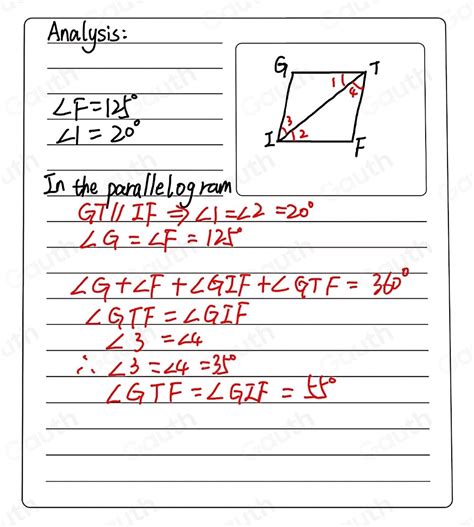 Analysis:
G T
1 4
3
I 2 F
∠F=125°
∠1=20°
In the parallelogram
GT∥IF⇒∠1=∠2=20°
∠G=∠F=125°
∠G+∠F+∠GIF+∠GTF=360°
∠GTF=∠GIF
∠3=∠4
∴∠3=∠4=35°
∠GTF=∠GIF=55°